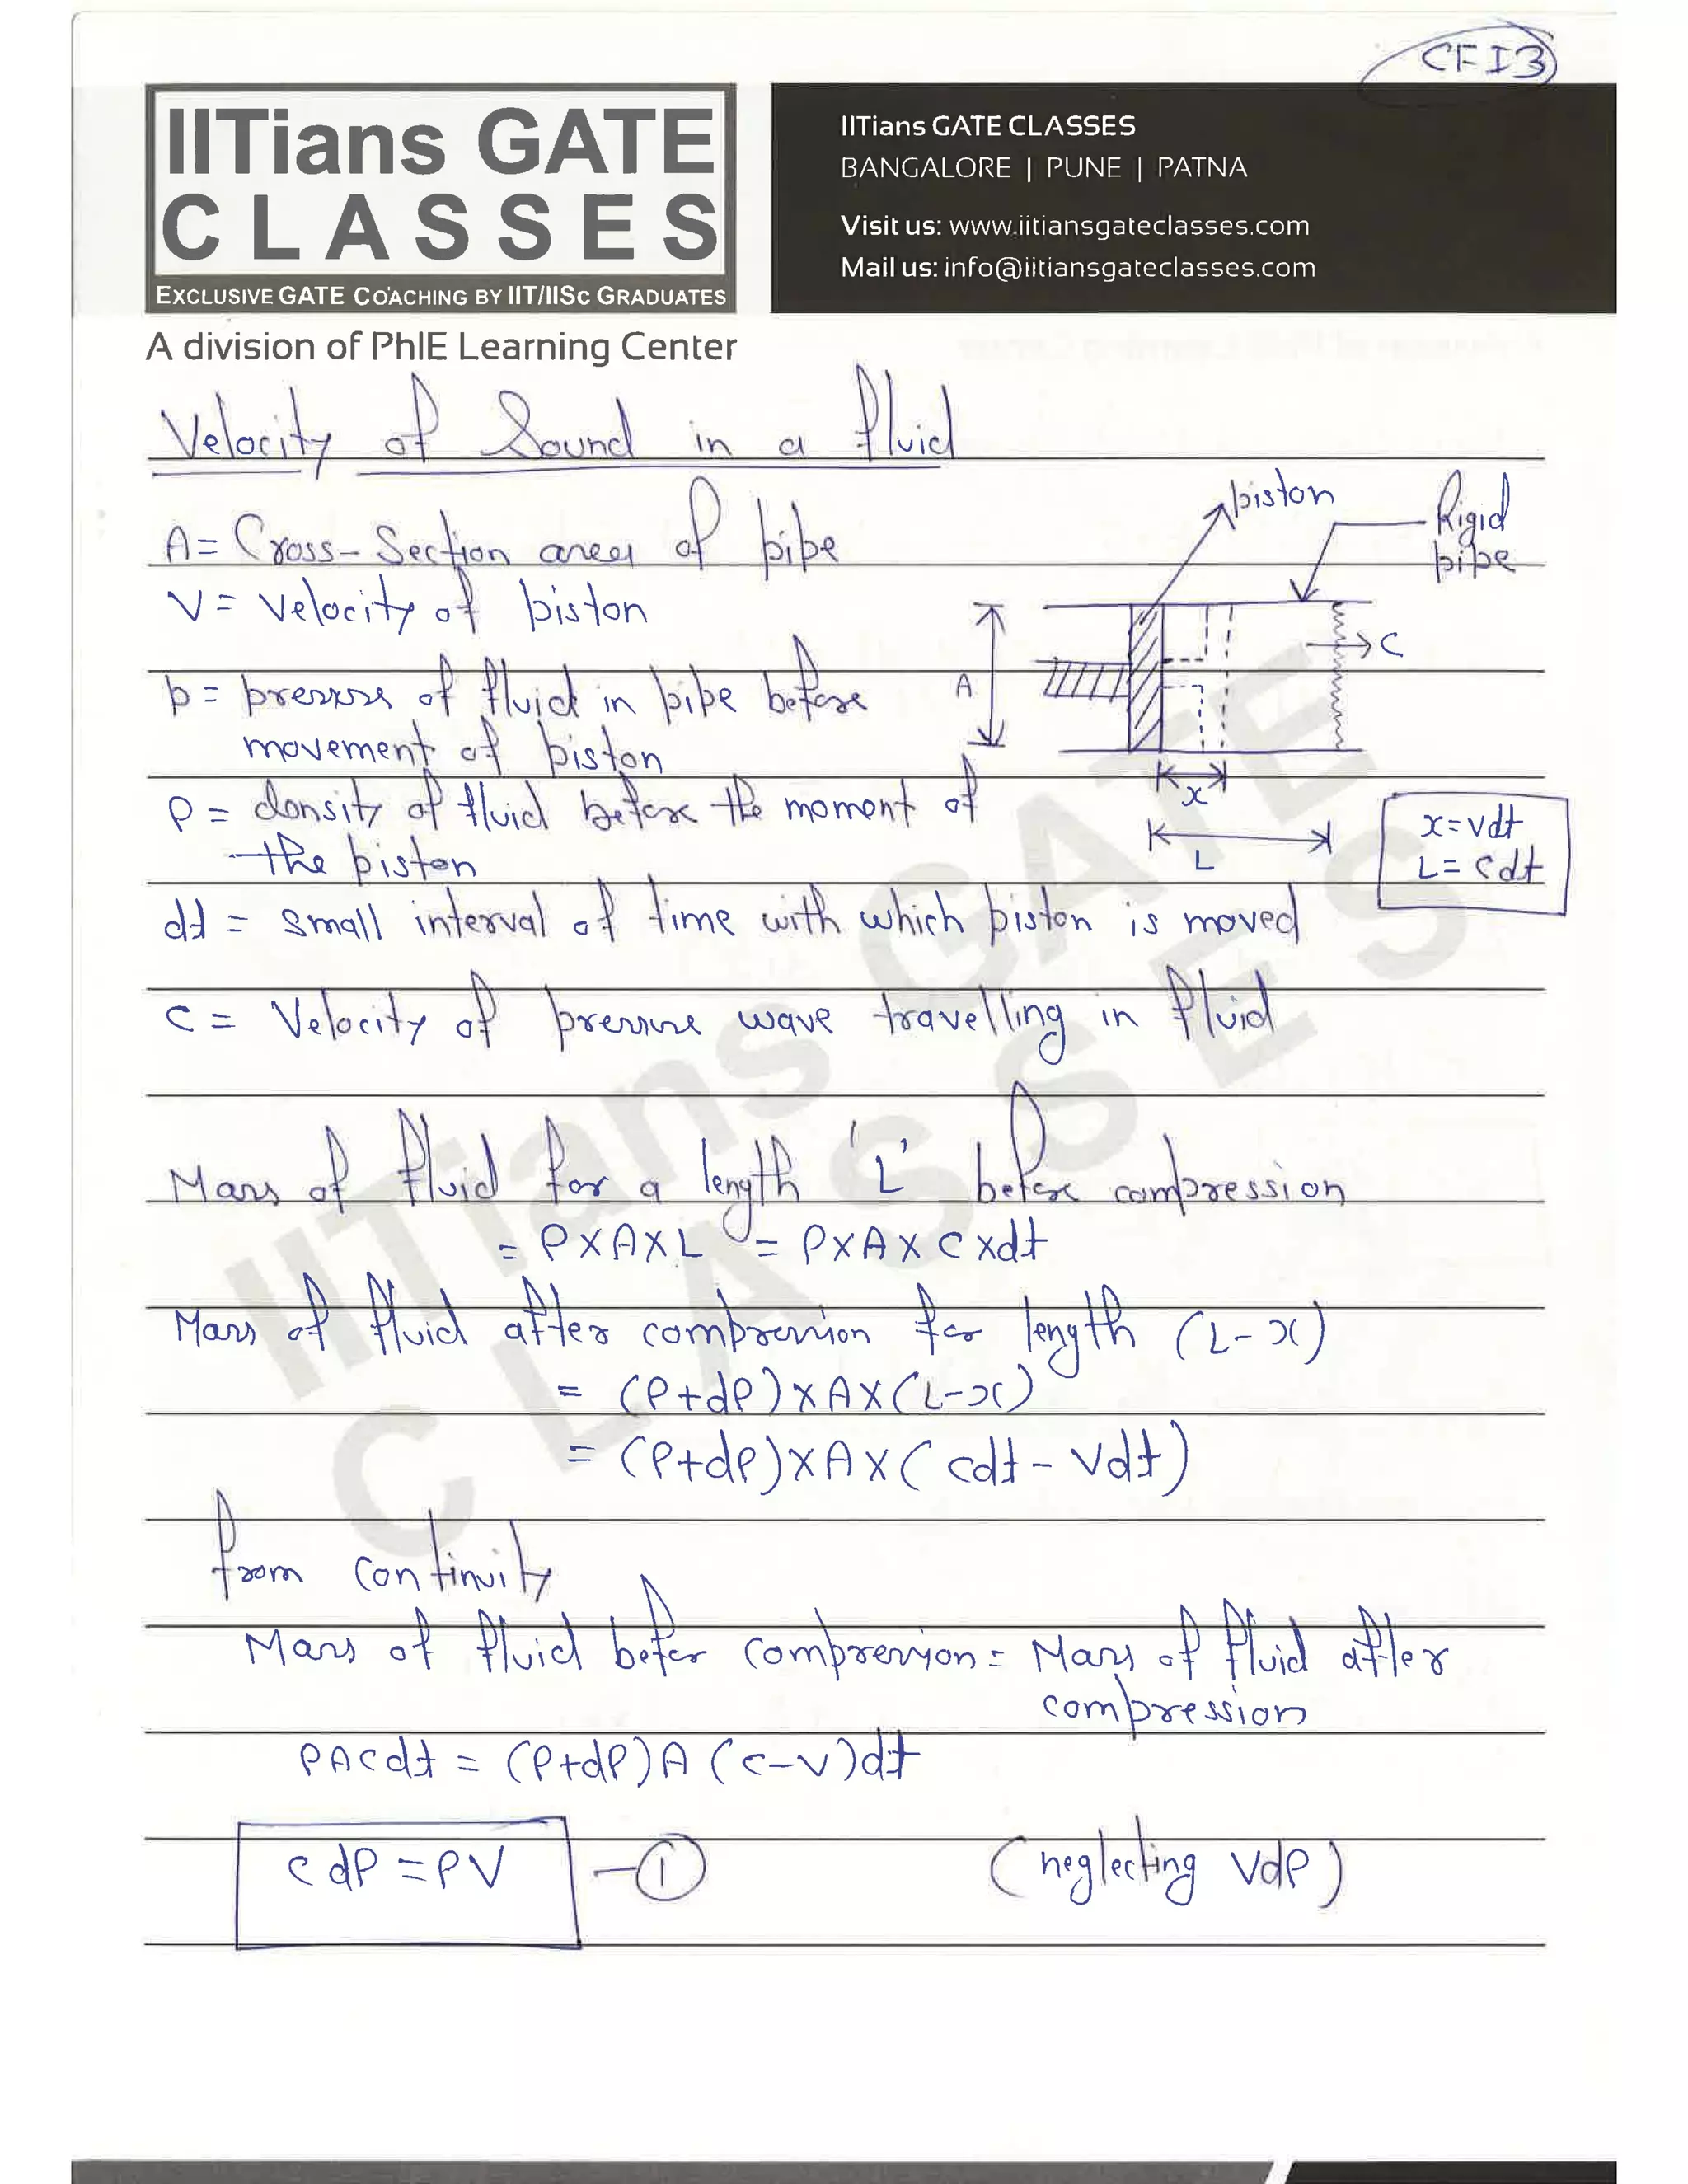 CF I3
IITians GATE
CLASSES
EXCLUSIVE GATE COACHING BY IIT/IISc GRADUATES
A division of PhIE Learning Center
IITians GATE CLASSES
BANGALORE | PUNE | PATNA
Visit us: www.iitiansgateclasses.com
Mail us: info@iitiansgateclasses.com
Velocity of Sound in a fluid
A = Cross-Section area of pipe
V = Velocity of piston
p = pressure of fluid in pipe before
movement of piston
ρ = density of fluid before the moment of
the piston
dt = Small interval of time with which piston is moved
C = Velocity of pressure wave travelling in fluid
piston
Rigid
pipe
A
C
x
L
x = vdt
L = cdt
Mass of fluid for a length 'L' before compression
= ρ×A×L = ρ×A×C×dt
Mass of fluid after compression for length (L-x)
= (ρ+dρ)×A×(L-x)
= (ρ+dρ)×A×(cdt-Vdt)
from continuity
Mass of fluid before compression = Mass of fluid after
compression
ρAcdt = (ρ+dρ)A(c-v)dt
c dρ = ρV —①
(neglecting Vdρ)
IITians GATE
CLASSES